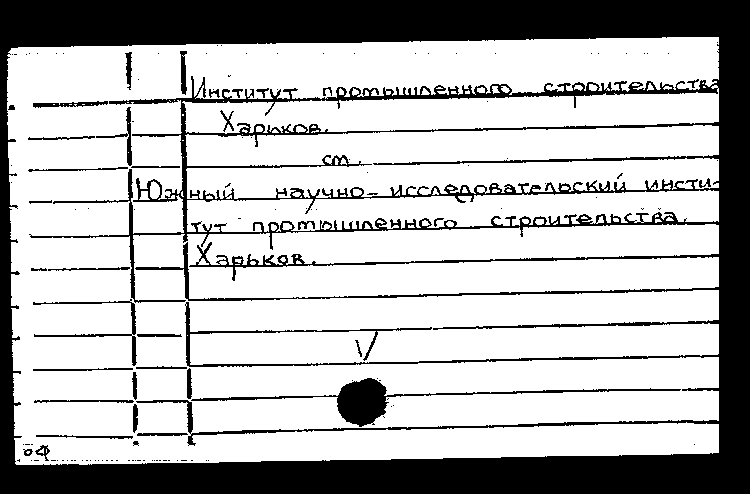 Институт промышленного строительства
Харьков.
см.
Южный научно-исследовательский инсти-
тут промышленного строительства.
Харьков.
оФ